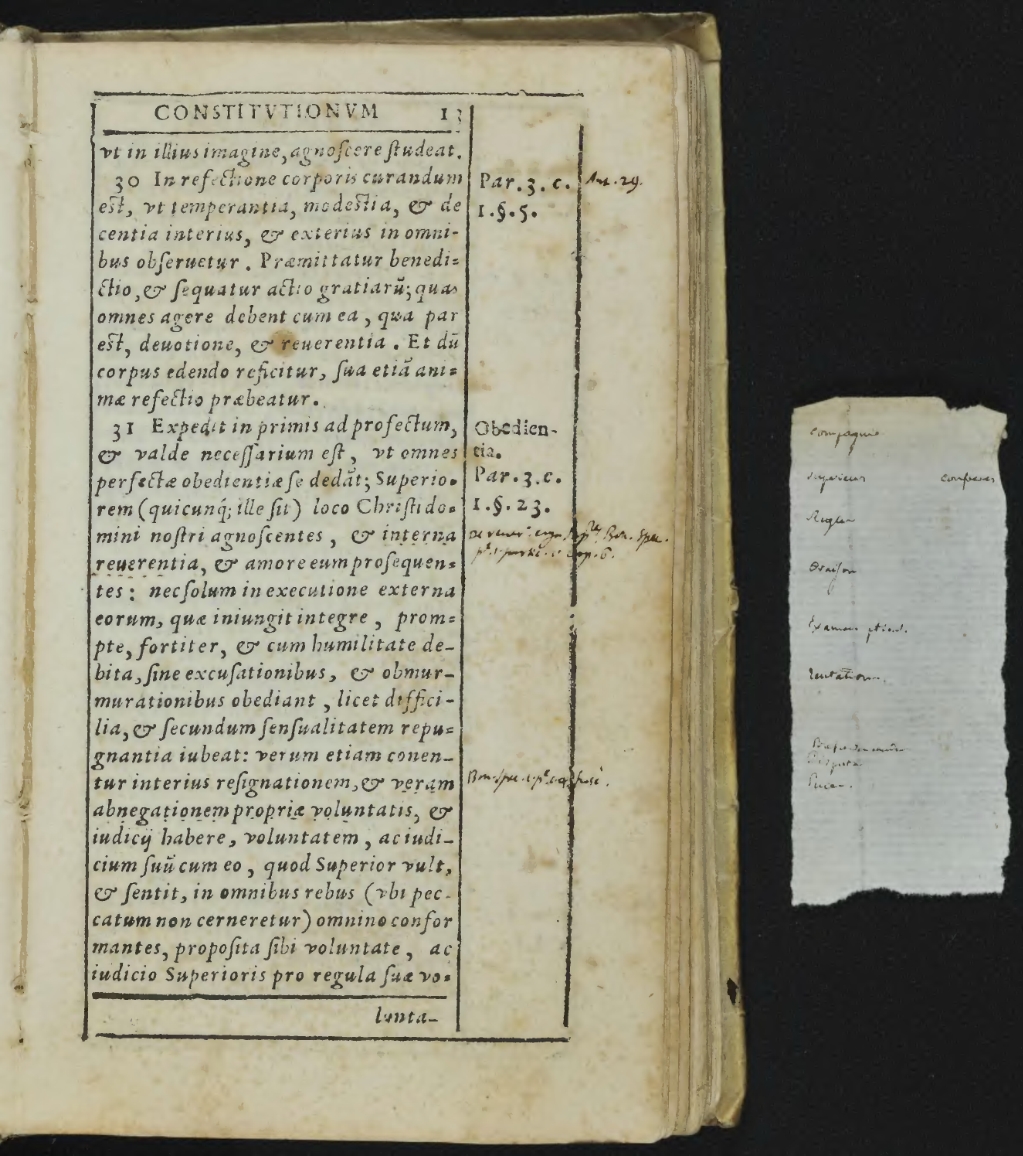 CONSTITVTIONVM 13
vt in illius imagine, agnoſcere ſtudeat.
30 In refectione corporis curandum
eſt, vt temperantia, modeſtia, & de
centia interius, & exterius in omni-
bus obſeruetur. Præmittatur benedi-
ctio, & ſequatur actio gratiarũ; quas
omnes agere debent cum ea, qua par
eſt, deuotione, & reuerentia. Et dũ
corpus edendo reficitur, ſua etiã ani-
mæ refectio præbeatur.
31 Expedit in primis ad profectum,
& valde neceſſarium eſt, vt omnes
perfectæ obedientiæ ſe dedãt; Superio-
rem (quicunq; ille ſit) loco Chriſti do-
mini noſtri agnoſcentes, & interna
reuerentia, & amore eum proſequen-
tes: nec ſolum in executione externa
eorum, quæ iniungit integre, prom-
pte, fortiter, & cum humilitate de-
bita, ſine excuſationibus, & obmur-
murationibus obediant, licet diffici-
lia, & ſecundum ſenſualitatem repu-
gnantia iubeat: verum etiam conen-
tur interius reſignationem, & veram
abnegationem propriæ voluntatis, &
iudicij habere, voluntatem, ac iudi-
cium ſuũ cum eo, quod Superior vult,
& ſentit, in omnibus rebus (vbi pec-
catum non cerneretur) omnino confor
mantes, propoſita ſibi voluntate, ac
iudicio Superioris pro regula ſuæ vo-
lunta-
Par. 3. c.
1. §. 5.
Obedien-
tia.
Par. 3. c.
1. §. 23.
Compagnie
ſuperieurs confeſſeur
Regles
Oraiſon
Examen
tentations